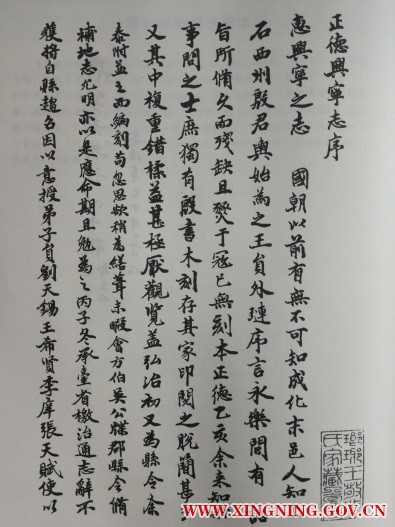 正德興寧志序
惠興寧之志 國朝以前有無不可知成化末邑人知
石西州殷君輿始為之王員外璉序言永樂間有詔
旨所脩久而殘缺且燹于寇已無刻本正德乙亥余来知縣
事問之士庶獨有殷書木刻存其家印閱之脫簡甚多
又其中複重錯揉益甚極厭觀覽蓋弘治初又為縣令余
泰附益之而編刻苟忽思欲稍為繕葺未暇會方伯吳公牒郡縣令脩
補地志尤明亦以是應命期且勉為之丙子冬承臺省檄治通志辭不
獲將自縣趨召因以意授弟子員劉天錫王希賢李庠張天賦使以
WWW.XINGNING.GOV.CN